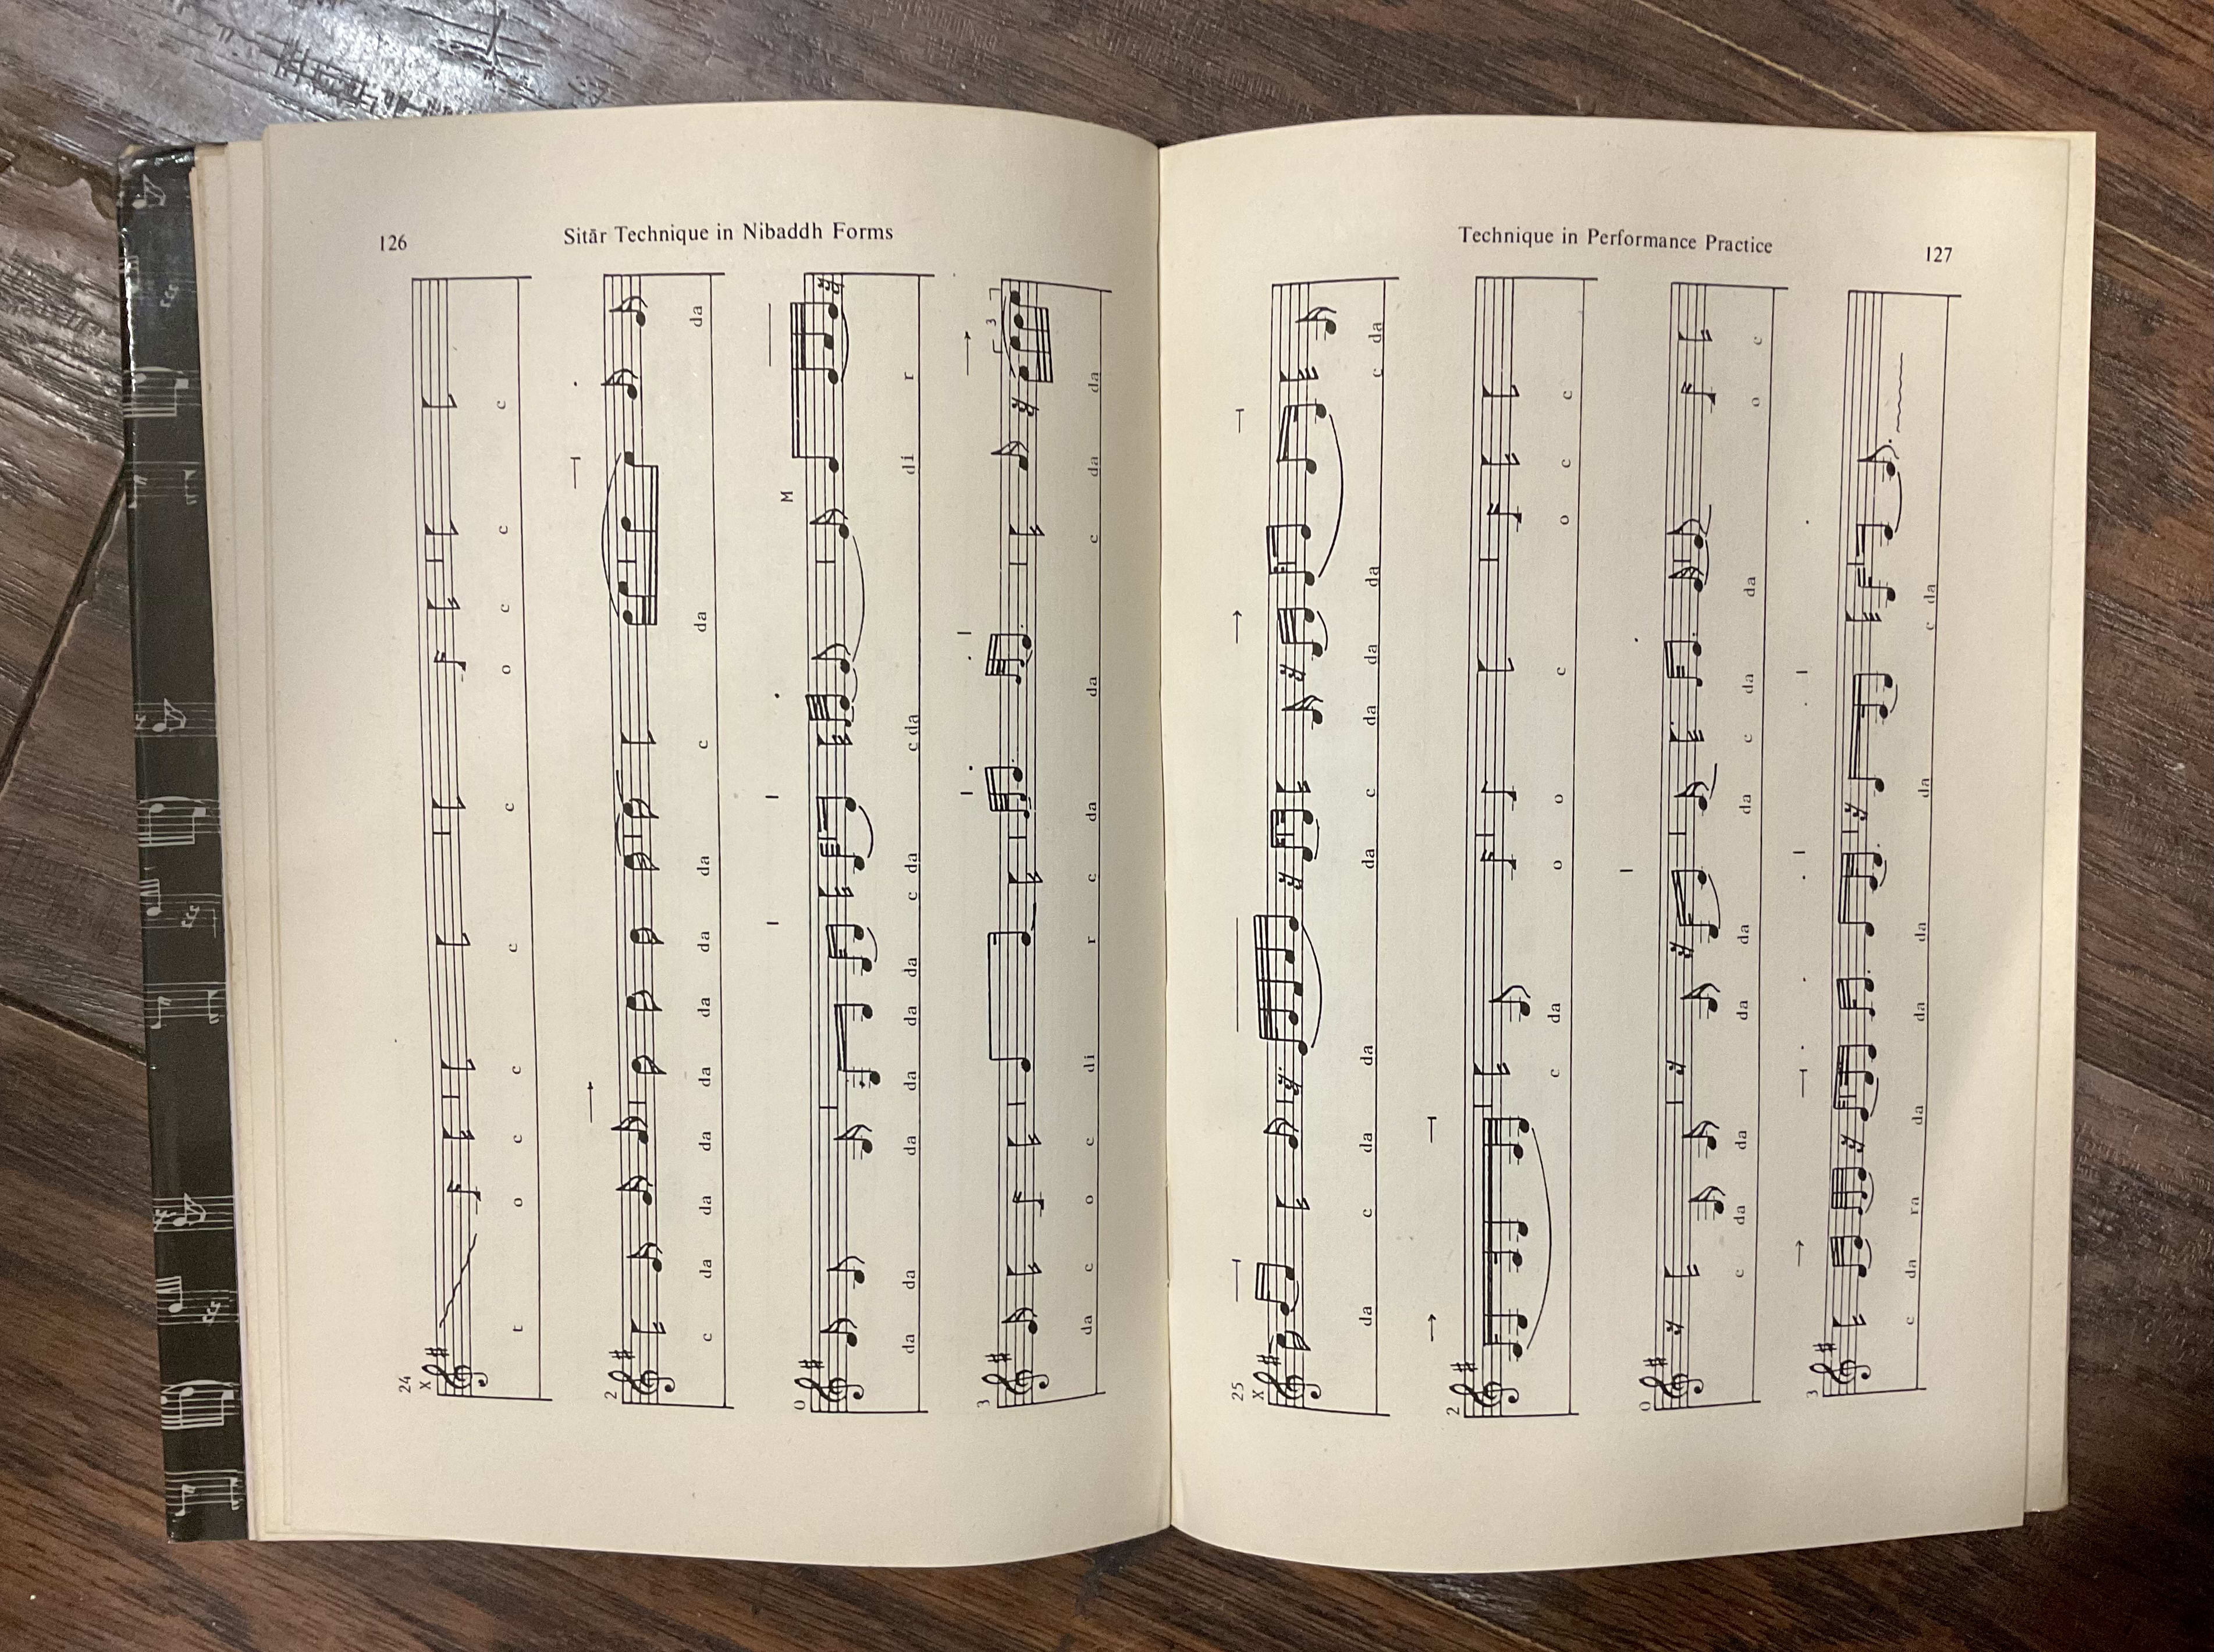 126
Sitār Technique in Nibaddh Forms
24
X
t o c c c c o c c c
2
c da da da da da da da c da da
0
M
da da da da da da c da c da di r
3
3
da c o c di r c da da c da da
Technique in Performance Practice
127
25
X
da c da da da c da da da c da
2
c da o o c o c c
0
c da da da da da c da da o c
3
c da ra da da da da c da